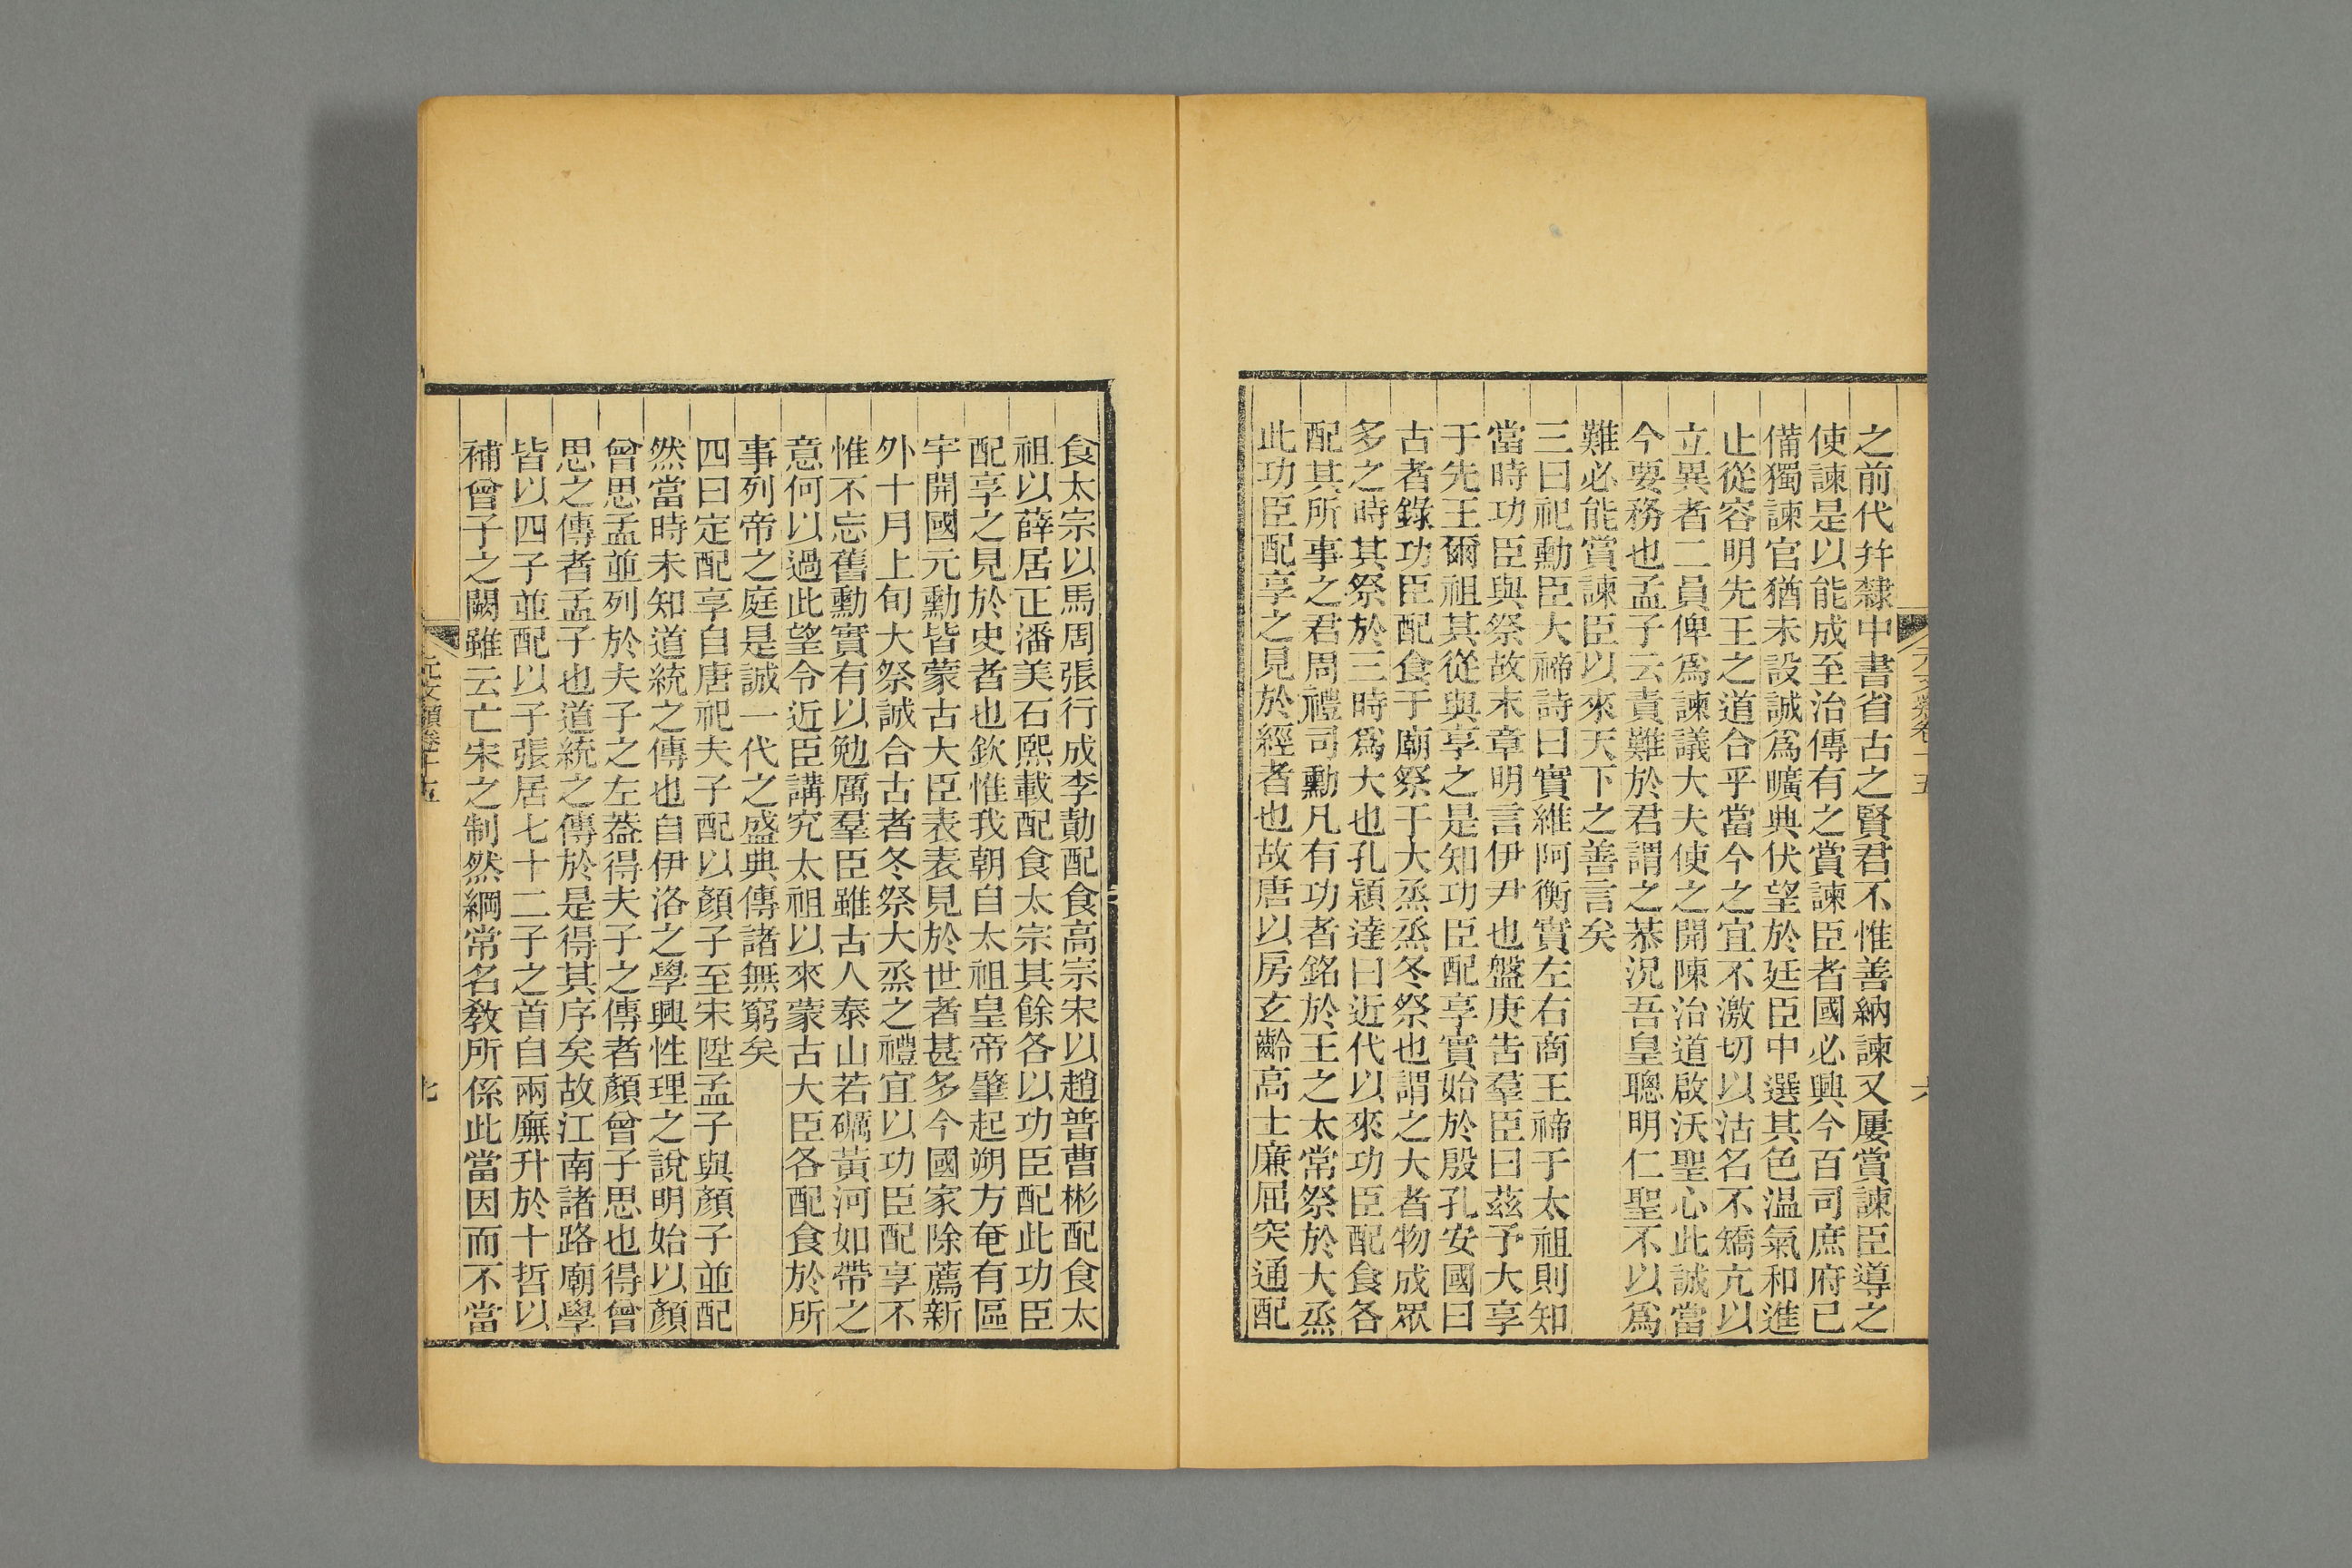 之前代幷隸中書省古之賢君不惟善納諫又屢賞諫臣導之
使諫是以能成至治傳有之賞諫臣者國必興今百司庶府已
備獨諫官猶未設誠爲曠典伏望於廷臣中選其色温氣和進
止從容明先王之道合乎當今之宜不激切以沽名不矯亢以
立異者二員俾爲諫議大夫使之開陳治道啟沃聖心此誠當
今要務也孟子云責難於君謂之恭況吾皇聰明仁聖不以爲
難必能賞諫臣以來天下之善言矣
三曰祀勳臣大禘詩曰實維阿衡實左右商王禘于太祖則知
當時功臣與祭故末章明言伊尹也盤庚告羣臣曰茲予大享
于先王爾祖其從與享之是知功臣配享實始於殷孔安國曰
古者錄功臣配食于廟祭于大烝烝冬祭也謂之大者物成眾
多之時其祭於三時爲大也孔穎達曰近代以來功臣配食各
配其所事之君周禮司勳凡有功者銘於王之太常祭於大烝
此功臣配享之見於經者也故唐以房玄齡高士廉屈突通配
食太宗以馬周張行成李勣配食高宗宋以趙普曹彬配食太
祖以薛居正潘美石熙載配食太宗其餘各以功臣配此功臣
配享之見於史者也欽惟我朝自太祖皇帝肇起朔方奄有區
宇開國元勳皆蒙古大臣表表見於世者甚多今國家除薦新
外十月上旬大祭誠合古者冬祭大烝之禮宜以功臣配享不
惟不忘舊勳實有以勉厲羣臣雖古人泰山若礪黃河如帶之
意何以過此望令近臣講究太祖以來蒙古大臣各配食於所
事列帝之庭是誠一代之盛典傳諸無窮矣
四曰定配享自唐祀夫子配以顏子至宋陞孟子與顏子並配
然當時未知道統之傳也自伊洛之學興性理之說明始以顏
曾思孟並列於夫子之左葢得夫子之傳者顏曾子思也得曾
思之傳者孟子也道統之傳於是得其序矣故江南諸路廟學
皆以四子並配以子張居七十二子之首自兩廡升於十哲以
補曾子之闕雖云亡宋之制然綱常名敎所係此當因而不當
元文類卷十五
七